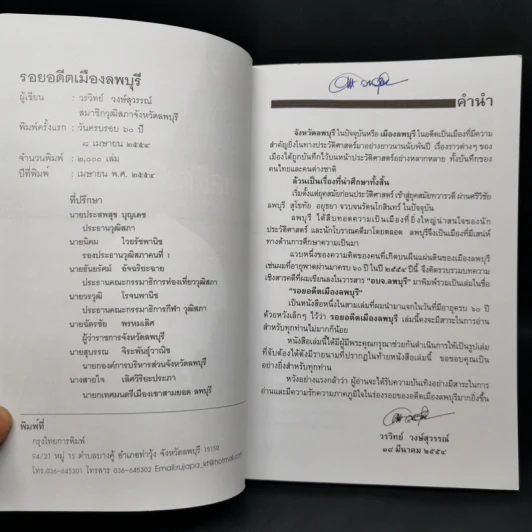 รอยอดีตเมืองลพบุรี
ผู้เขียน : วรวิทย์ วงษ์สุวรรณ์
สมาชิกวุฒิสภาจังหวัดลพบุรี
พิมพ์ครั้งแรก : วันครบรอบ ๖๐ ปี
๘ เมษายน ๒๕๕๔
จำนวนพิมพ์ : ๒,๐๐๐ เล่ม
ปีที่พิมพ์ : เมษายน พ.ศ. ๒๕๕๔
ที่ปรึกษา
นายประสพสุข บุญเดช
ประธานวุฒิสภา
นายนิคม ไวยรัชพานิช
รองประธานวุฒิสภาคนที่ ๑
นายธันยรัศม์ อัจฉริยะฉาย
ประธานคณะกรรมาธิการท่องเที่ยววุฒิสภา
นายวรวุฒิ โรจนพานิช
ประธานคณะกรรมาธิการกีฬา วุฒิสภา
นายฉัตรชัย พรหมเลิศ
ผู้ว่าราชการจังหวัดลพบุรี
นายสุบรรณ จิระพันธุ์วาณิช
นายกองค์การบริหารส่วนจังหวัดลพบุรี
นางสายใจ เลิศวิริยะประภา
นายกเทศมนตรีเมืองเขาสามยอด ลพบุรี
พิมพ์ที่
กรุงไทยการพิมพ์
94/21 หมู่ 15 ตำบลบางคู้ อำเภอท่าวุ้ง จังหวัดลพบุรี 15150
โทร.036-645301 โทรสาร 036-645302 Email:rujapa_yt@hotmail.com
คำนำ
จังหวัดลพบุรี ในปัจจุบันหรือ เมืองลพบุรี ในอดีตเป็นเมืองที่มีความ
สำคัญยิ่งในทางประวัติศาสตร์มาอย่างยาวนานนับพันปี เรื่องราวต่างๆ ของ
เมืองได้ถูกบันทึกไว้บนหน้าประวัติศาสตร์อย่างหลากหลาย ทั้งบันทึกของ
คนไทยและคนต่างชาติ
ล้วนเป็นเรื่องที่น่าศึกษาทั้งสิ้น
เริ่มตั้งแต่ยุคสมัยก่อนประวัติศาสตร์ เข้าสู่ยุคสมัยทวารวดี ผ่านศรีวิชัย
ลพบุรี สุโขทัย อยุธยา จวบจนรัตนโกสินทร์ ในปัจจุบัน
ลพบุรี ได้สืบทอดความเป็นเมืองที่ยิ่งใหญ่น่าสนใจของนัก
ประวัติศาสตร์ และนักโบราณคดีมาโดยตลอด ลพบุรีจึงเป็นเมืองที่มีเสน่ห์
ทางด้านการศึกษาความเป็นมา
แวบหนึ่งของความคิดของคนที่เกิดบนผืนแผ่นดินของเมืองลพบุรี
เช่นผมที่อายุพาดผ่านมาครบ ๖๐ ปี ในปี ๒๕๕๔ ปีนี้ จึงคิดรวบรวมบทความ
เชิงสารคดีที่ผมเขียนลงในวารสาร "อบจ.ลพบุรี" มาพิมพ์รวมเป็นเล่มในชื่อ
"รอยอดีตเมืองลพบุรี"
เป็นหนังสือหนึ่งในสามเล่มที่ผมนำมาแจกในวันที่มีอายุครบ ๖๐ ปี
ด้วยหวังเล็กๆ ไว้ว่า รอยอดีตเมืองลพบุรี เล่มนี้คงจะมีสาระในการอ่าน
สำหรับทุกท่านไม่มากก็น้อย
หนังสือเล่มนี้ได้มีผู้มีพระคุณกรุณาช่วยกันดำเนินการให้เป็นรูปเล่ม
ที่จับต้องได้ดังมีรายนามที่ปรากฏในท้ายหนังสือเล่มนี้ ขอขอบคุณเป็น
อย่างยิ่งสำหรับทุกท่าน
หวังอย่างแรงกล้าว่า ผู้อ่านจะได้รับความบันเทิงอย่างมีสาระในการ
อ่านและมีความรักความภาคภูมิใจในร่องรอยของอดีตเมืองลพบุรีมากยิ่งขึ้น
วรวิทย์ วงษ์สุวรรณ์
๑๘ มีนาคม ๒๕๕๔